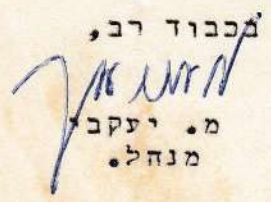 בכבוד רב,
מ. יעקבי
מנהל.